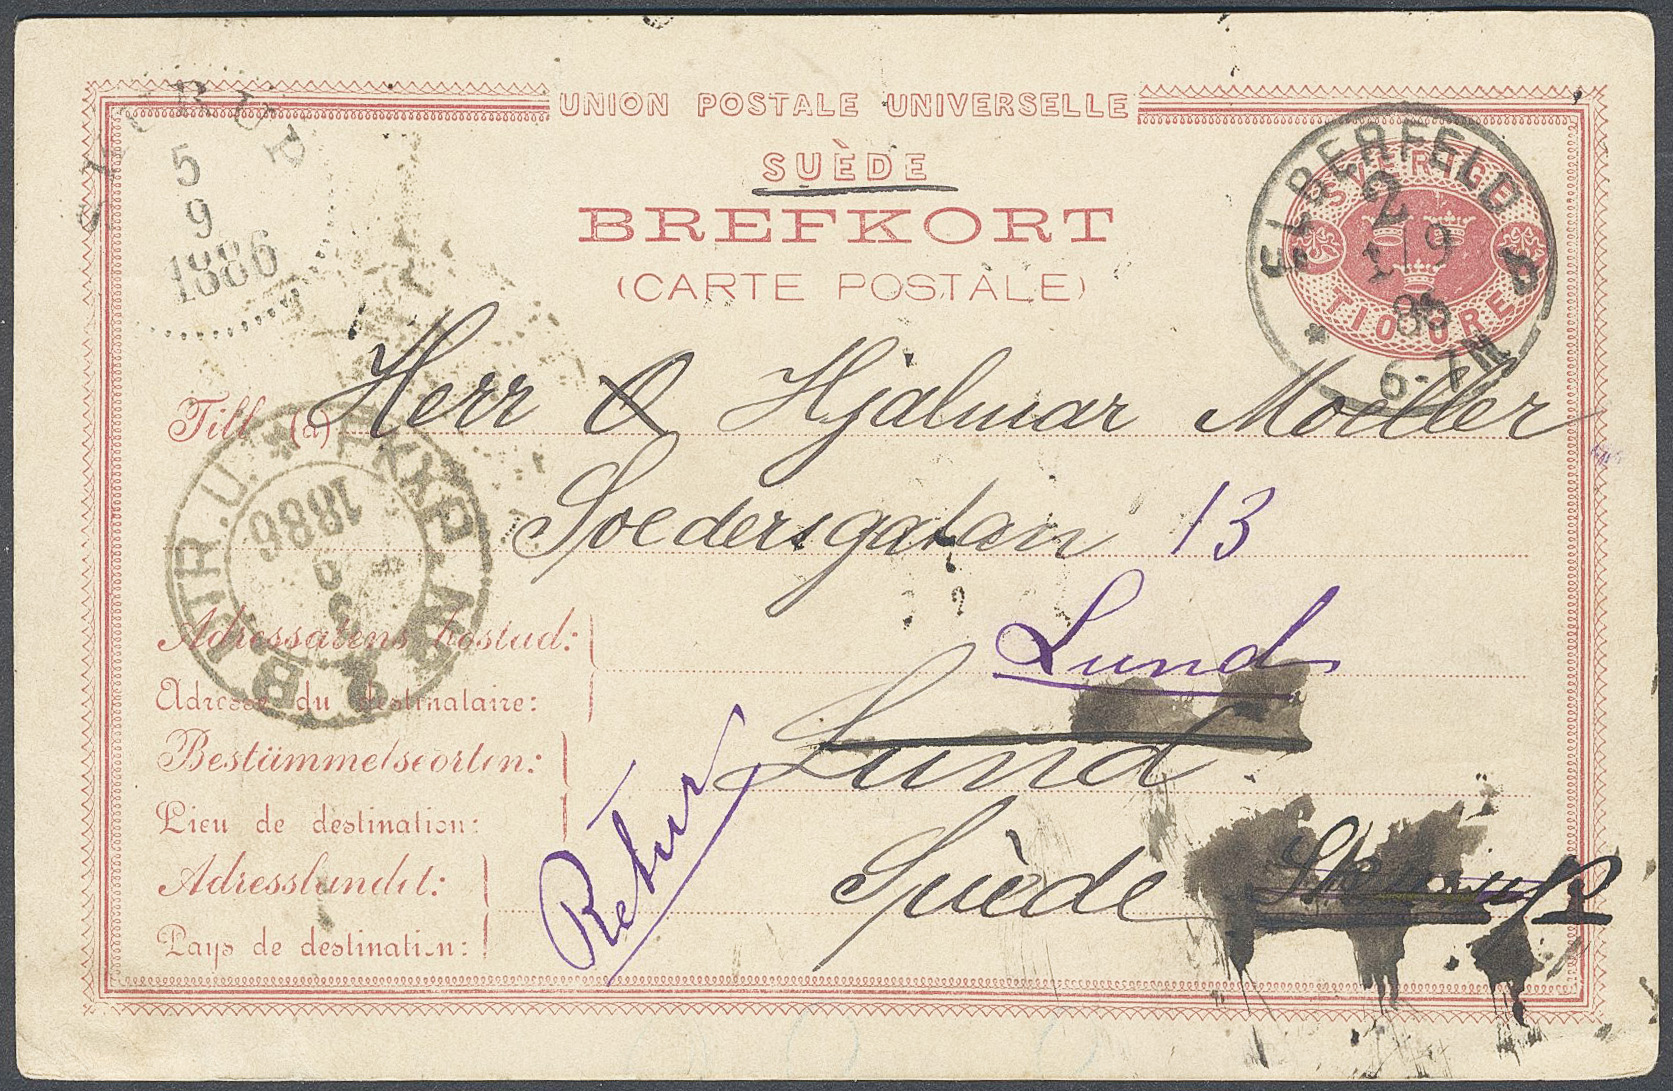 UNION POSTALE UNIVERSELLE
SUÈDE
BREFKORT
(CARTE POSTALE)
SKURUP
5
9
1886
ELBERFELD
2
1/9
86
6-7N
SVERIGE
TIO ÖRE
Till (à) Herr Hjalmar Moeller
Soedersgatan 13
PKXP. Nr 2 B UTR. U.
1886
9
Adressatens bostad:
Adresse du destinataire:
Lund
Bestämmelseorten:
Lieu de destination:
Lund
Adresslandet:
Pays de destination:
Suède Skurup
Retur